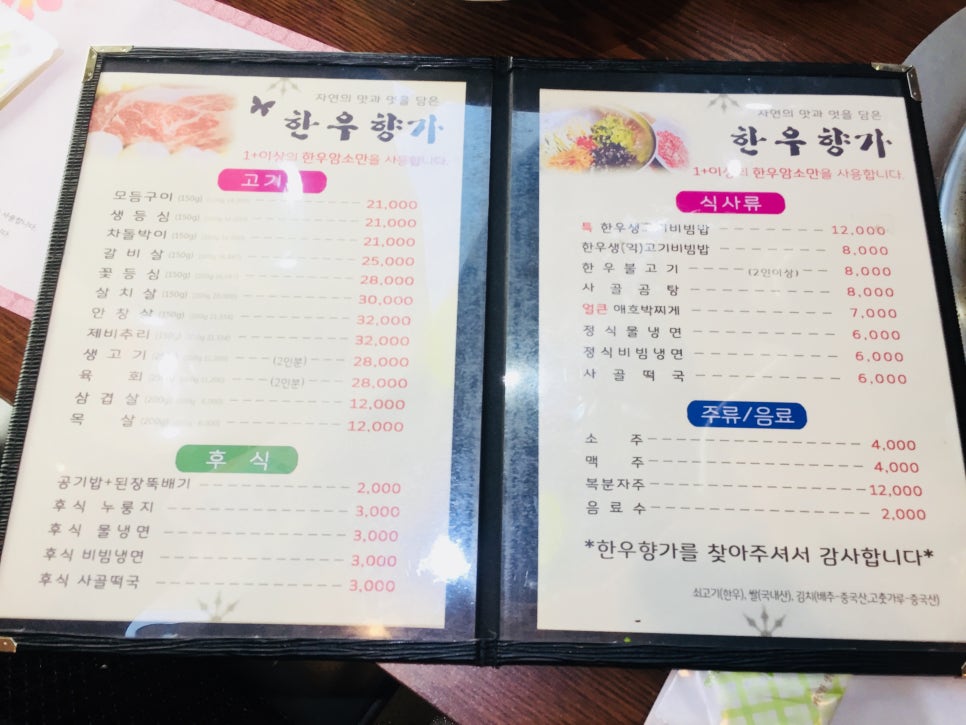 자연의 맛과 멋을 담은
한우향가
1+이상의 한우암소만을 사용합니다.
고기
모듬구이 (150g) 21,000
생등심 (150g) 21,000
차돌박이 (150g) 21,000
갈비살 (150g) 25,000
꽃등심 (150g) 28,000
살치살 (150g) 30,000
안창살 (150g) 32,000
제비추리 (150g) 32,000
생고기 (2인분) 28,000
육회 (2인분) 28,000
삼겹살 (200g) 12,000
목살 (200g) 12,000
후식
공기밥+된장뚝배기 2,000
후식 누룽지 3,000
후식 물냉면 3,000
후식 비빔냉면 3,000
후식 사골떡국 3,000
자연의 맛과 멋을 담은
한우향가
1+이상의 한우암소만을 사용합니다.
식사류
특 한우생고기비빔밥 12,000
한우생(익)고기비빔밥 8,000
한우불고기 (2인이상) 8,000
사골곰탕 8,000
얼큰 애호박찌게 7,000
정식물냉면 6,000
정식비빔냉면 6,000
사골떡국 6,000
주류/음료
소주 4,000
맥주 4,000
복분자주 12,000
음료수 2,000
*한우향가를 찾아주셔서 감사합니다*
쇠고기(한우), 쌀(국내산), 김치(배추-중국산,고춧가루-중국산)